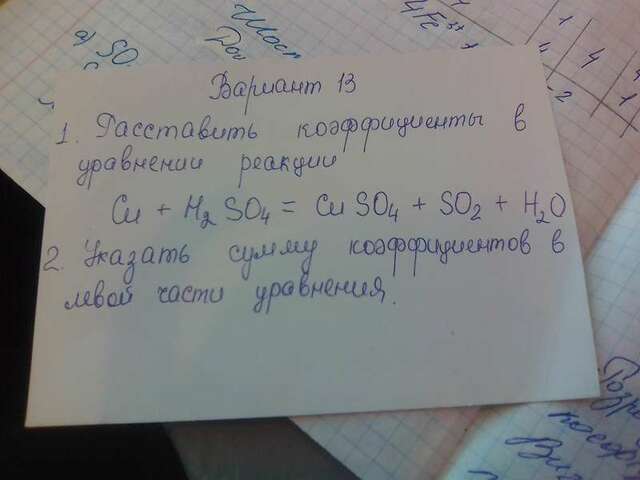 а) SO
4Fe
4
1
4
1
2
Вариант 13
1. Расставить коэффициенты в
уравнении реакции
Cu + H₂SO₄ = CuSO₄ + SO₂ + H₂O
2. Указать сумму коэффициентов в
левой части уравнения.